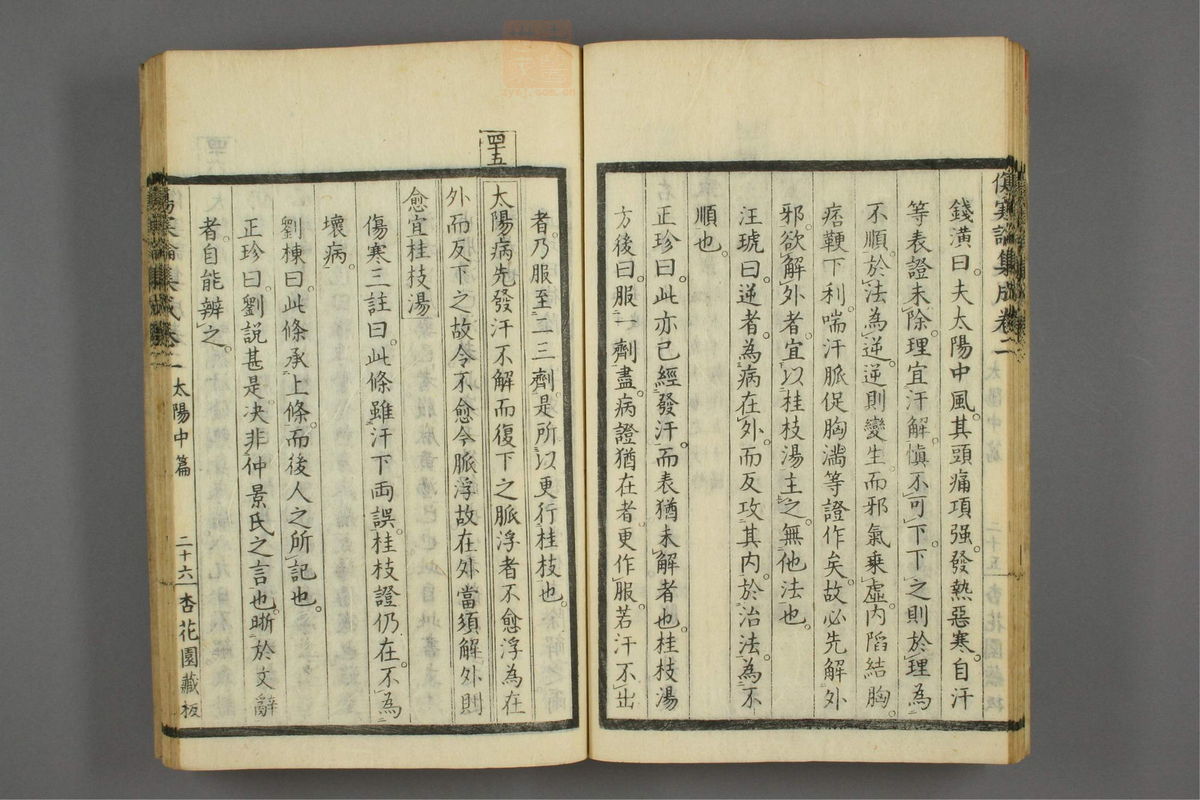 傷寒論集成卷二
錢潢曰。夫太陽中風。其頭痛項强。發熱惡寒。自汗
等表證未除。理宜汗解。愼不可下。下之則於理為
不順。於法為逆。逆則變生。而邪氣乗虛。内陷結胸。
痞鞕下利。喘汗脈促胸滿等證作矣。故必先解外
邪。欲解外者。宜以桂枝湯主之。無他法也。
汪琥曰。逆者。為病在外。而反攻其内。於治法。為不
順也。
正珍曰。此亦已經發汗。而表猶未解者也。桂枝湯
方後曰。服一劑盡。病證猶在者。更作服。若汗不出
者。乃服至二三劑。是所以更行桂枝也。
四十五
太陽病先發汗不解而復下之脈浮者不愈浮為在
外而反下之故令不愈今脈浮故在外當須解外則
愈宜桂枝湯
傷寒三註曰。此條雖汗下両誤。桂枝證仍在。不為
壞病。
劉棟曰。此條承上條。而後人之所記也。
正珍曰。劉説甚是。决非仲景氏之言也。晣於文辭
者。自能辨之。
傷寒論集成卷二 太陽中篇 二十六 杏花園藏板